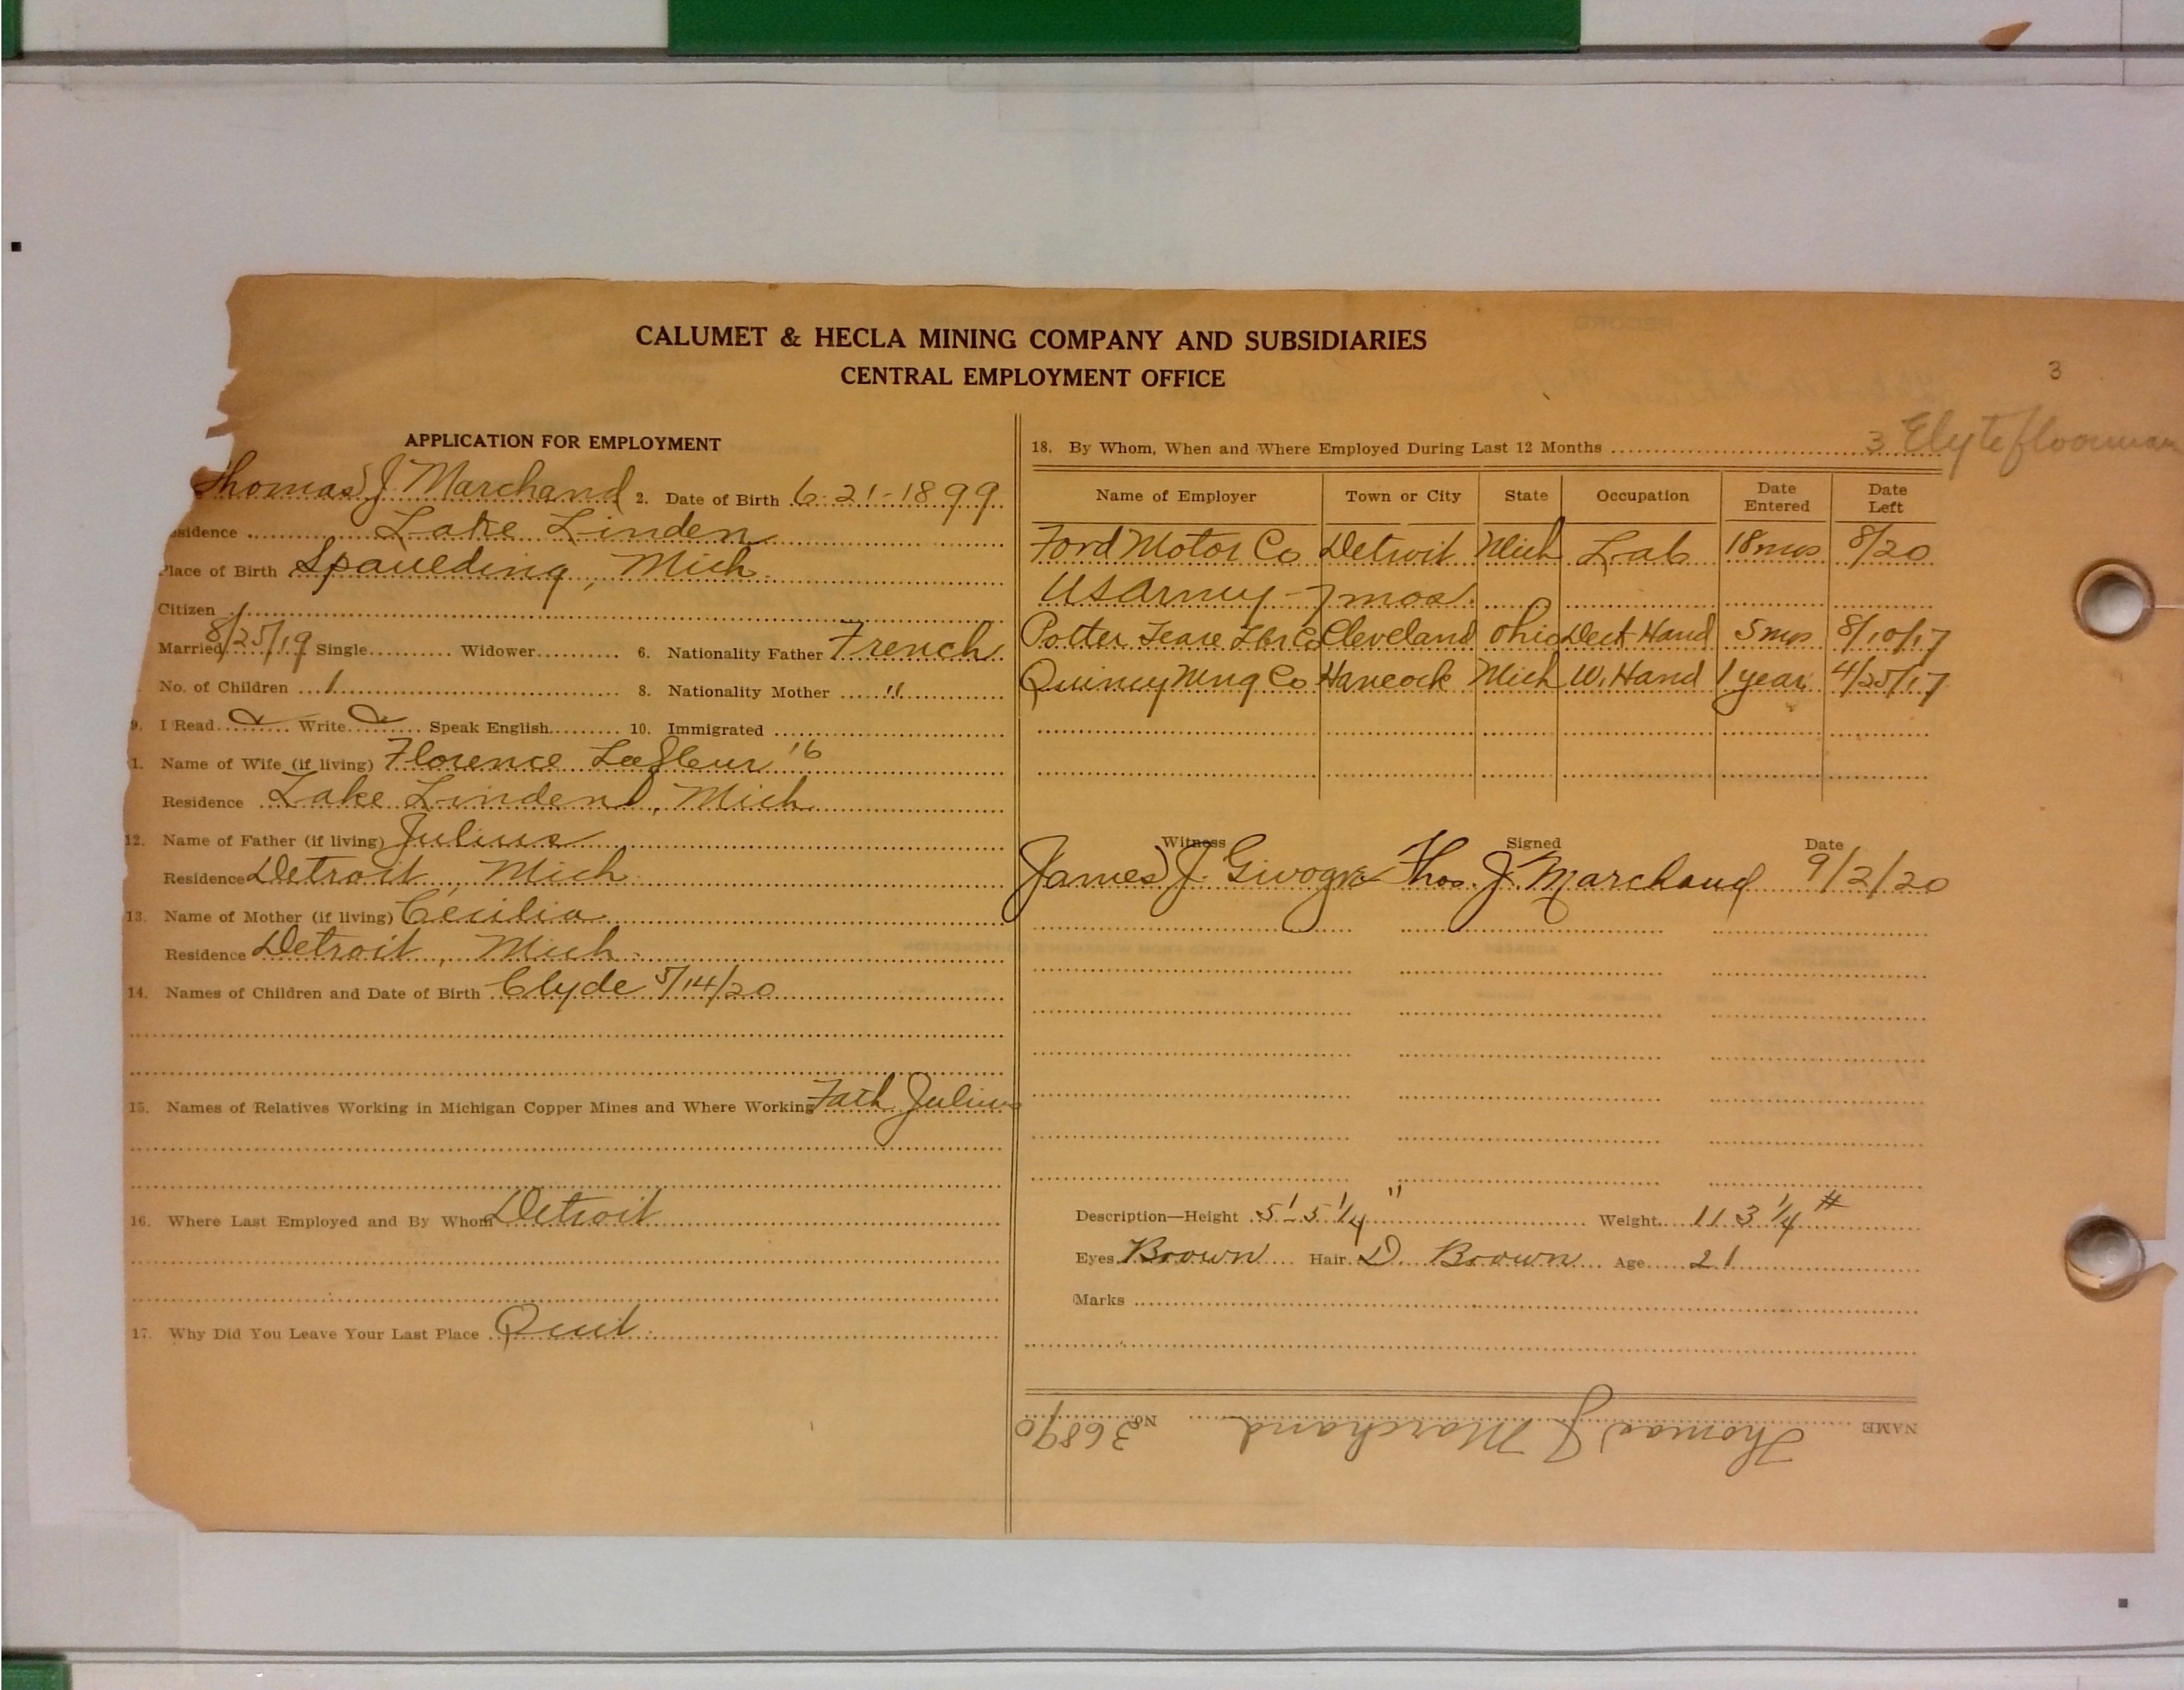 CALUMET & HECLA MINING COMPANY AND SUBSIDIARIES
CENTRAL EMPLOYMENT OFFICE
3
APPLICATION FOR EMPLOYMENT
Thomas J. Marchand 2. Date of Birth 6-21-1899
sidence Lake Linden
Place of Birth Spaulding, Mich.
Citizen /
Married 8/25/19 Single Widower 6. Nationality Father French
No. of Children 1 8. Nationality Mother "
9. I Read Write Speak English 10. Immigrated
1. Name of Wife (if living) Florence Lafleur '16
Residence Lake Linden, Mich
12. Name of Father (if living) Julius
Residence Detroit, Mich
13. Name of Mother (if living) Cecilia
Residence Detroit, Mich.
14. Names of Children and Date of Birth Clyde 5/14/20
15. Names of Relatives Working in Michigan Copper Mines and Where Working Fath. Julius
16. Where Last Employed and By Whom Detroit
17. Why Did You Leave Your Last Place Quit.
18. By Whom, When and Where Employed During Last 12 Months 3 Elyte floorman
Name of Employer Town or City State Occupation Date Entered Date Left
Ford Motor Co Detroit Mich Lab 18 mos 8/20
US Army - 7 mos.
Potter Co Cleveland Ohio Deck Hand 5 mos 8/10/17
Quincy Mng Co Hancock Mich W. Hand 1 year 4/25/17
Witness Signed Date
James J. Thos. J. Marchand 9/2/20
Description—Height 5'-5 1/4" Weight 113 1/4 #
Eyes Brown Hair D. Brown Age 21
Marks
NAME Thomas J. Marchand No. 36890